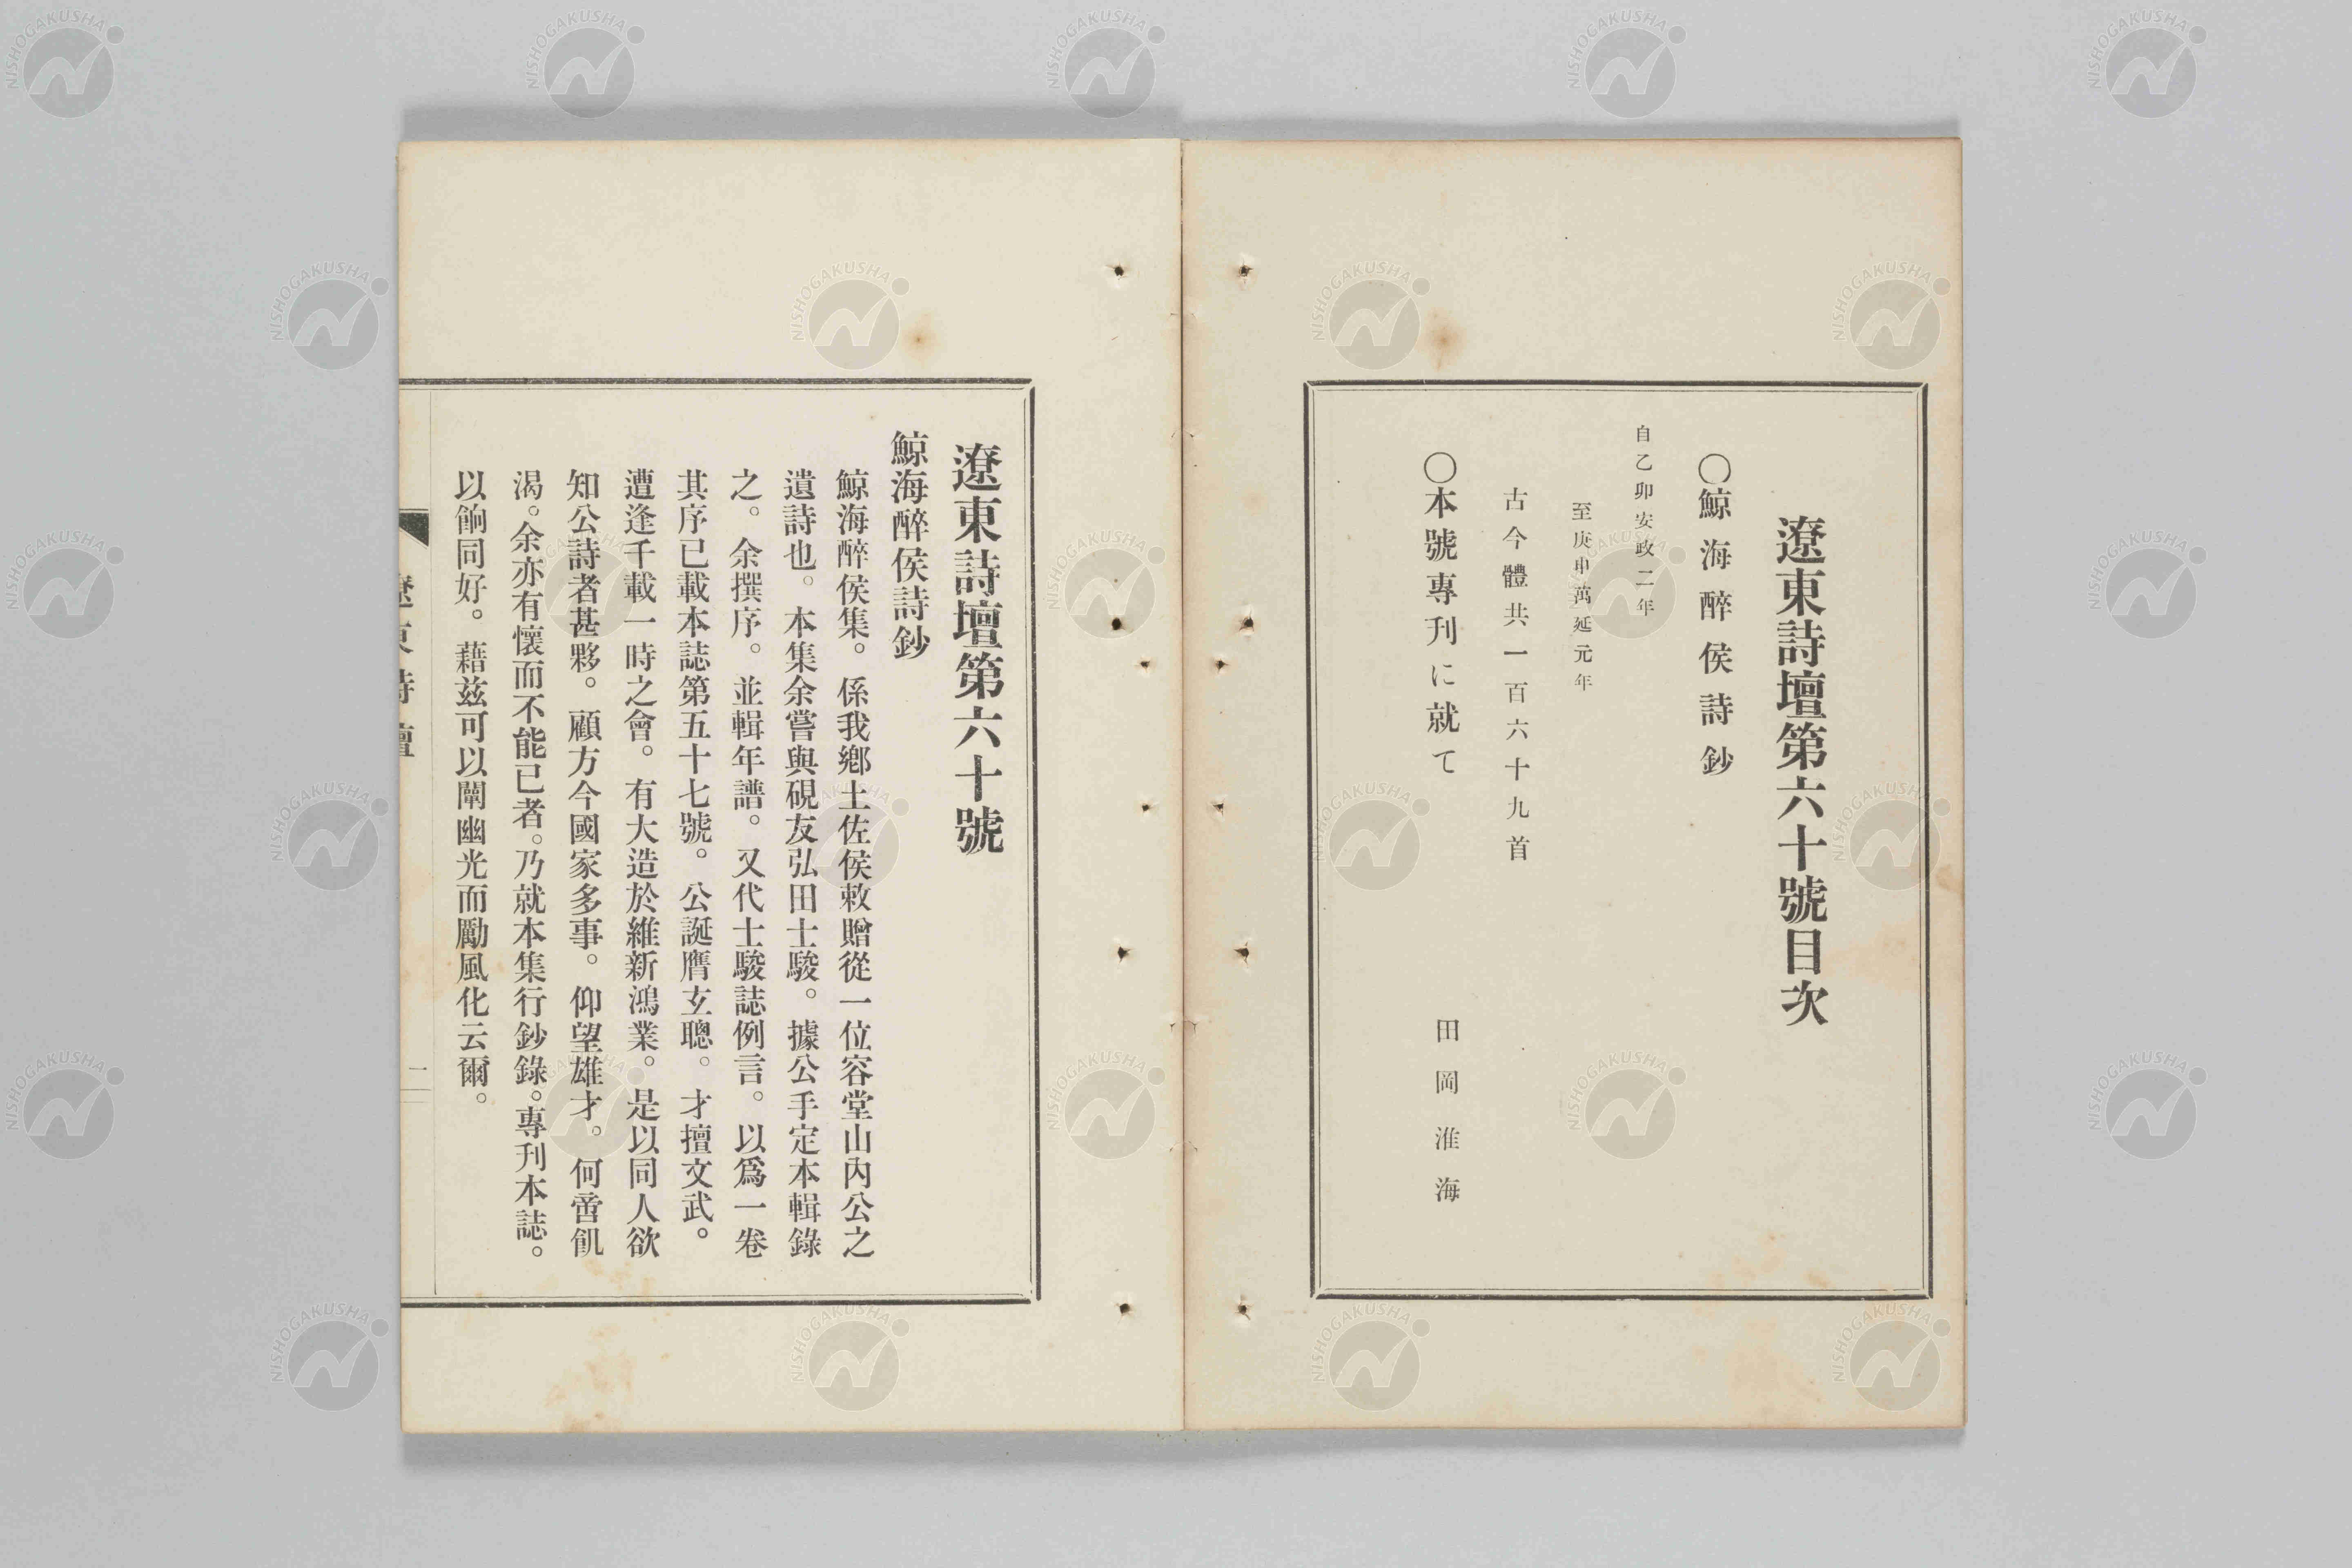 遼東詩壇第六十號目次
〇鯨海醉侯詩鈔
自乙卯安政二年
至庚申萬延元年
古今體共一百六十九首
〇本號專刊に就て　田岡淮海
遼東詩壇第六十號
鯨海醉侯詩鈔
鯨海醉侯集。係我鄕土佐侯敕贈從一位容堂山內公之
遺詩也。本集余嘗與硯友弘田士駿。據公手定本輯錄
之。余撰序。並輯年譜。又代士駿誌例言。以爲一卷
其序已載本誌第五十七號。公誕膺玄聰。才擅文武。
遭逢千載一時之會。有大造於維新鴻業。是以同人欲
知公詩者甚夥。顧方今國家多事。仰望雄才。何啻飢
渴。余亦有懷而不能已者。乃就本集行鈔錄。專刊本誌。
以餉同好。藉兹可以闡幽光而勵風化云爾。
遼東詩壇
一
NISHOGAKUSHA